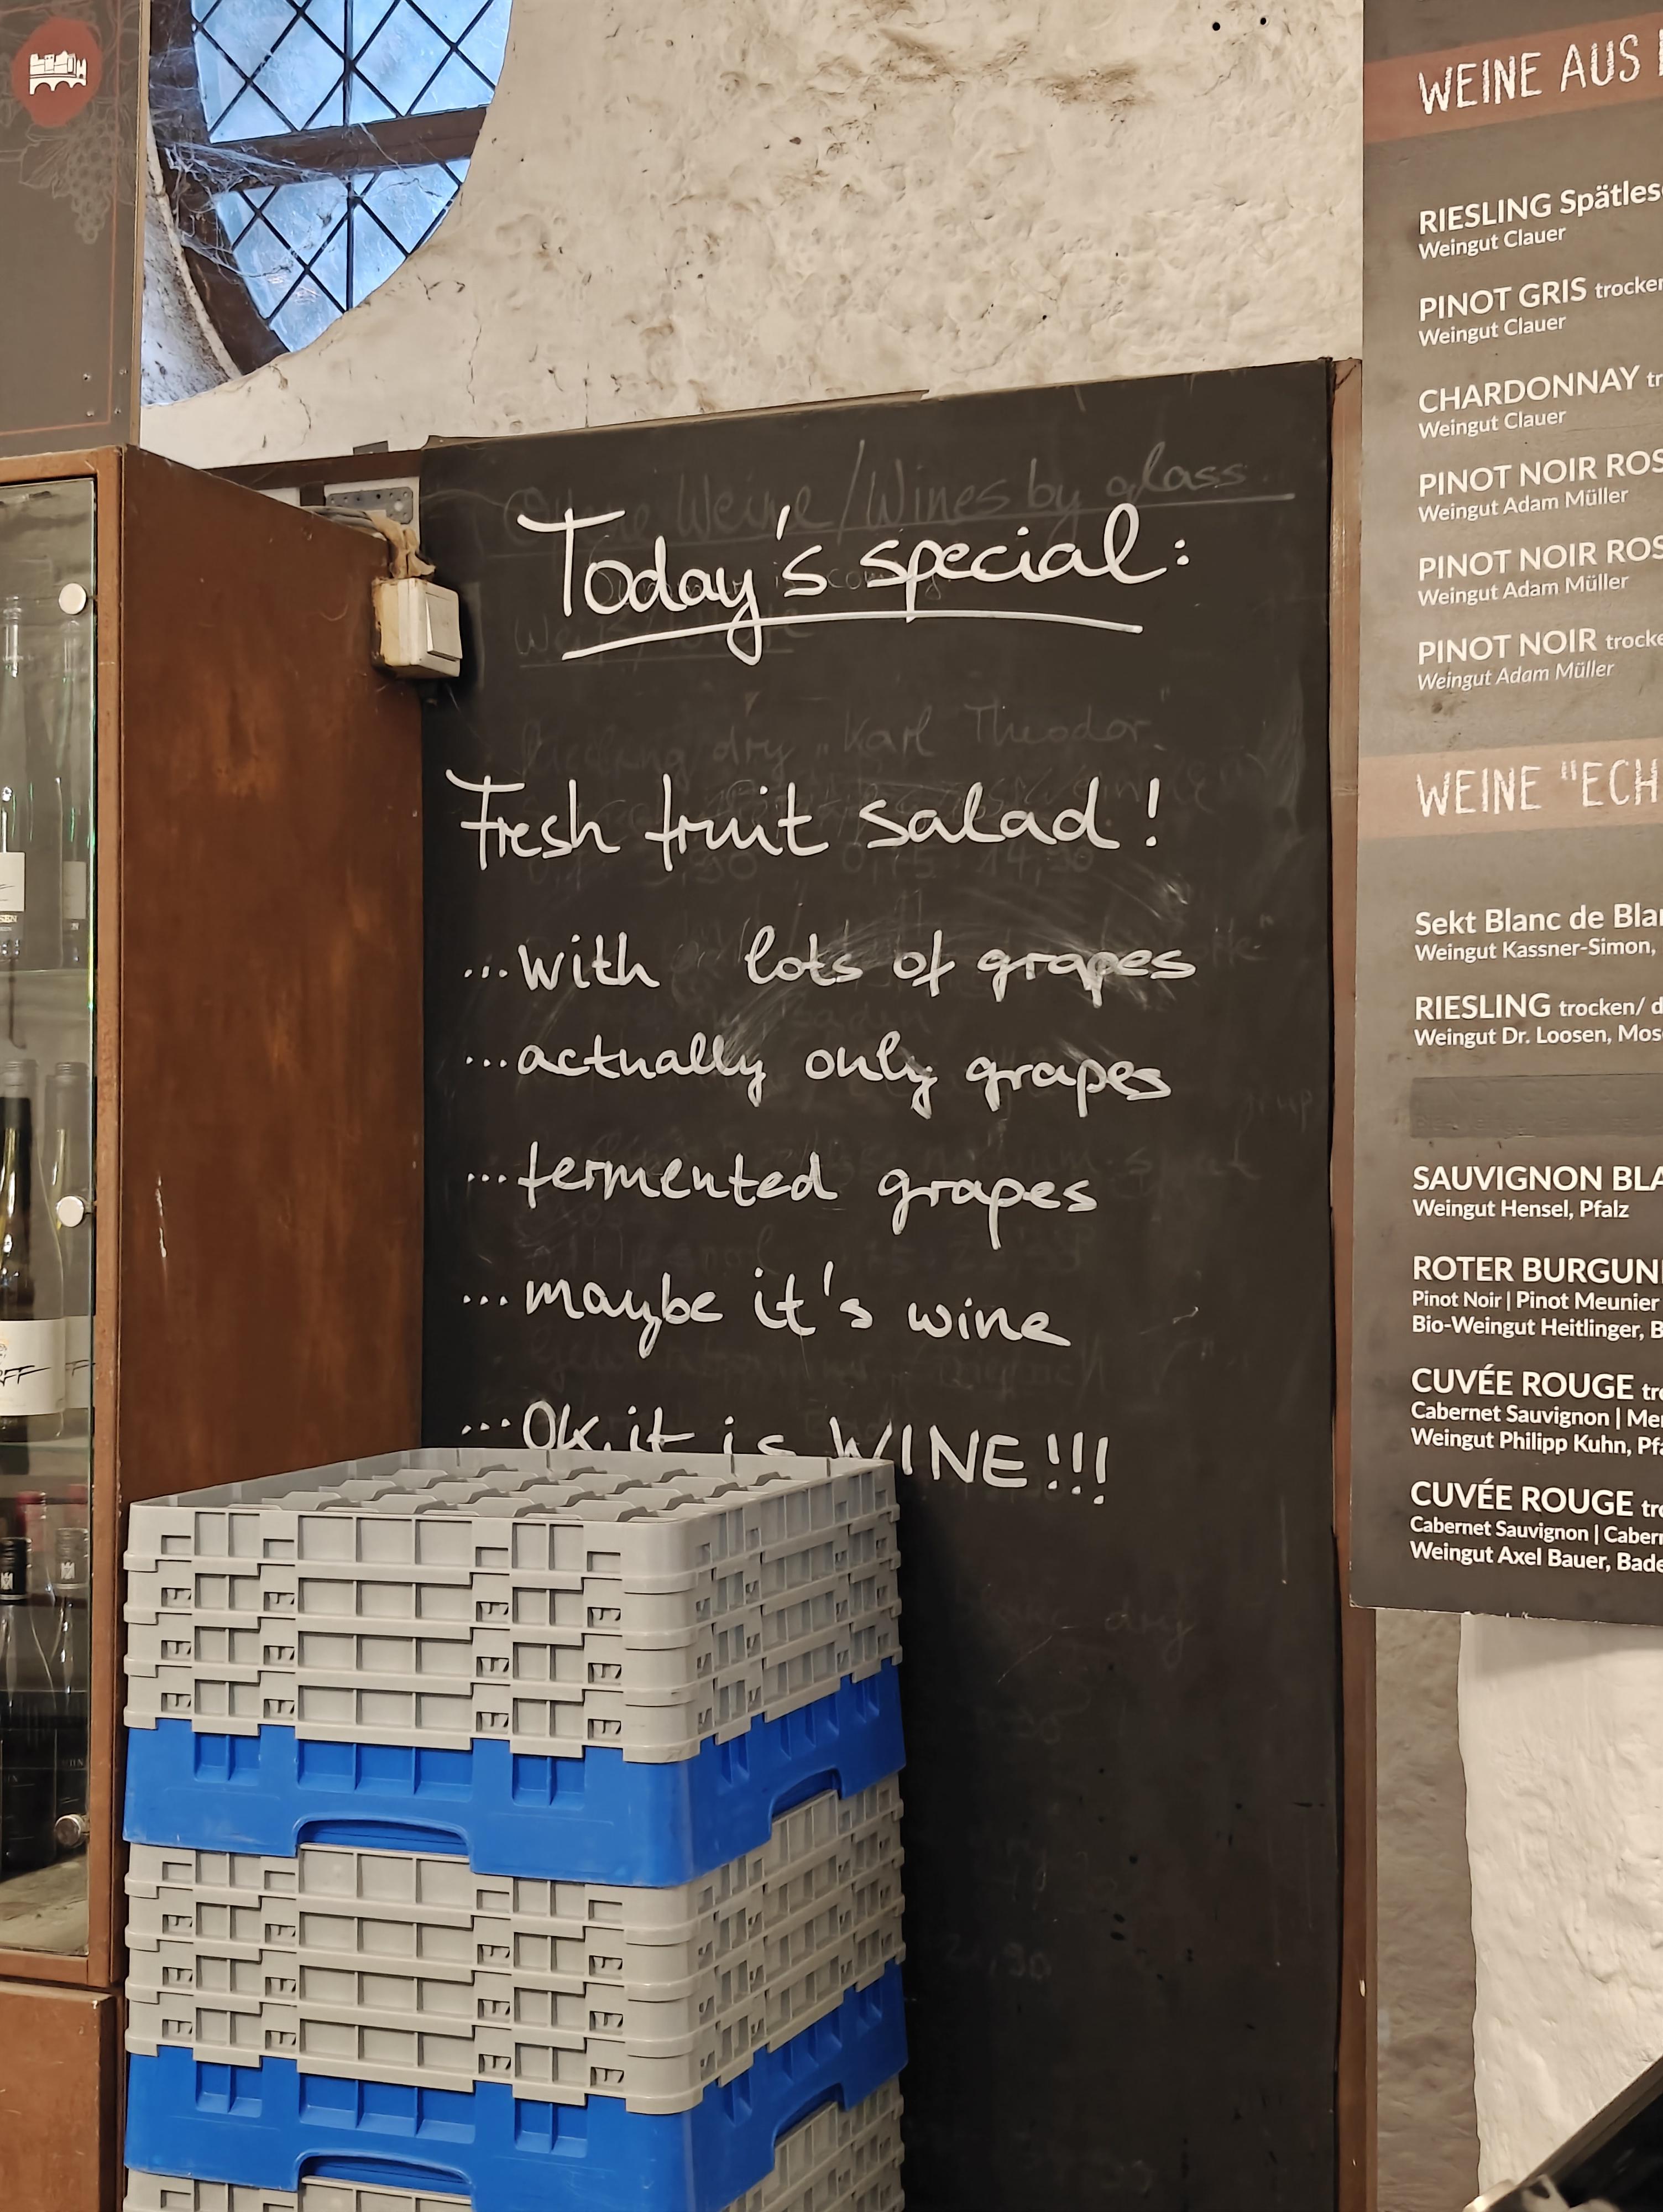 Today's special:
Fresh fruit salad!
...with lots of grapes
...actually only grapes
...fermented grapes
...maybe it's wine
...OK, it is WINE!!!
Weine / Wines by glass
Riesling dry "Karl Theodor"
dry
2,90
WEINE AUS
RIESLING Spätles
Weingut Clauer
PINOT GRIS trocken
Weingut Clauer
CHARDONNAY tr
Weingut Clauer
PINOT NOIR ROS
Weingut Adam Müller
PINOT NOIR ROS
Weingut Adam Müller
PINOT NOIR trocke
Weingut Adam Müller
WEINE "ECH
Sekt Blanc de Blan
Weingut Kassner-Simon,
RIESLING trocken/ d
Weingut Dr. Loosen, Mos
SAUVIGNON BLA
Weingut Hensel, Pfalz
ROTER BURGUN
Pinot Noir | Pinot Meunier
Bio-Weingut Heitlinger, B
CUVÉE ROUGE tro
Cabernet Sauvignon | Mer
Weingut Philipp Kuhn, Pfa
CUVÉE ROUGE tro
Cabernet Sauvignon | Caber
Weingut Axel Bauer, Bade